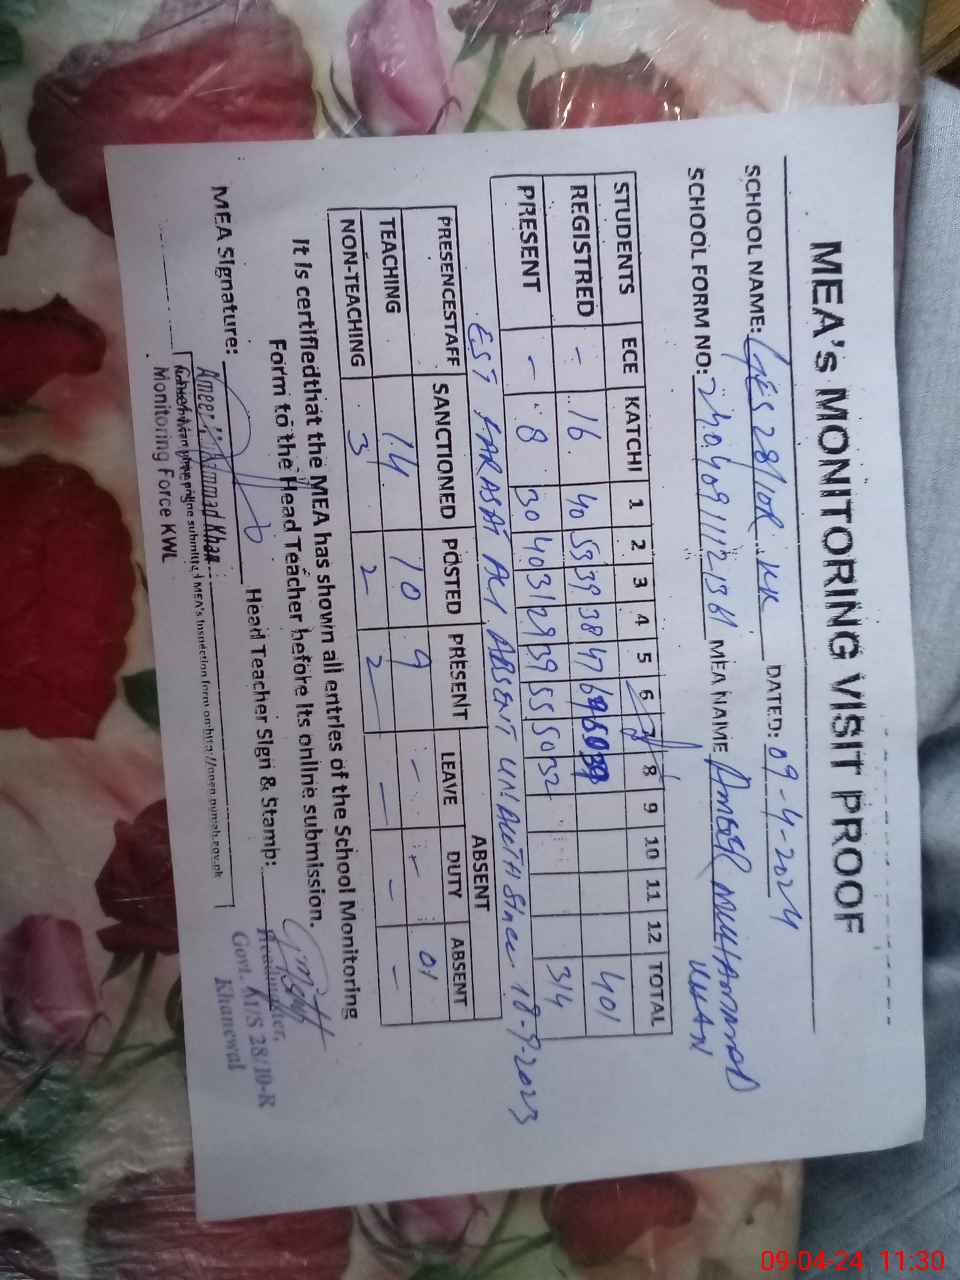 MEA's MONITORING VISIT PROOF
SCHOOL NAME: GES 28/10R KK DATED: 09-4-2024
SCHOOL FORM NO: MEA NAME AMEER MUHAMMAD KHAN
STUDENTS ECE KATCHI 1 2 3 4 5 6 7 8 9 10 11 12 TOTAL
REGISTRED - 16 40 53 39 38 47 69 60 39 401
PRESENT - 8 30 40 31 29 39 55 50 32 314
EST FARASAT ALI ABSENT Since 18-9-2023
ABSENT
PRESENCESTAFF SANCTIONED POSTED PRESENT LEAVE DUTY ABSENT
TEACHING 14 10 9 - - 01
NON-TEACHING 3 2 2 - - -
It is certifiedthat the MEA has shown all entries of the School Monitoring
Form to the Head Teacher before its online submission.
MEA Signature: Head Teacher Sign & Stamp:
Ameer Muhammad Khan
submitted MEA's Inspection form on:http://open.punjab.gov.pk
Monitoring Force KWL
Headmaster,
Govt. M/S 28/10-R
Khanewal
09-04-24 11:30